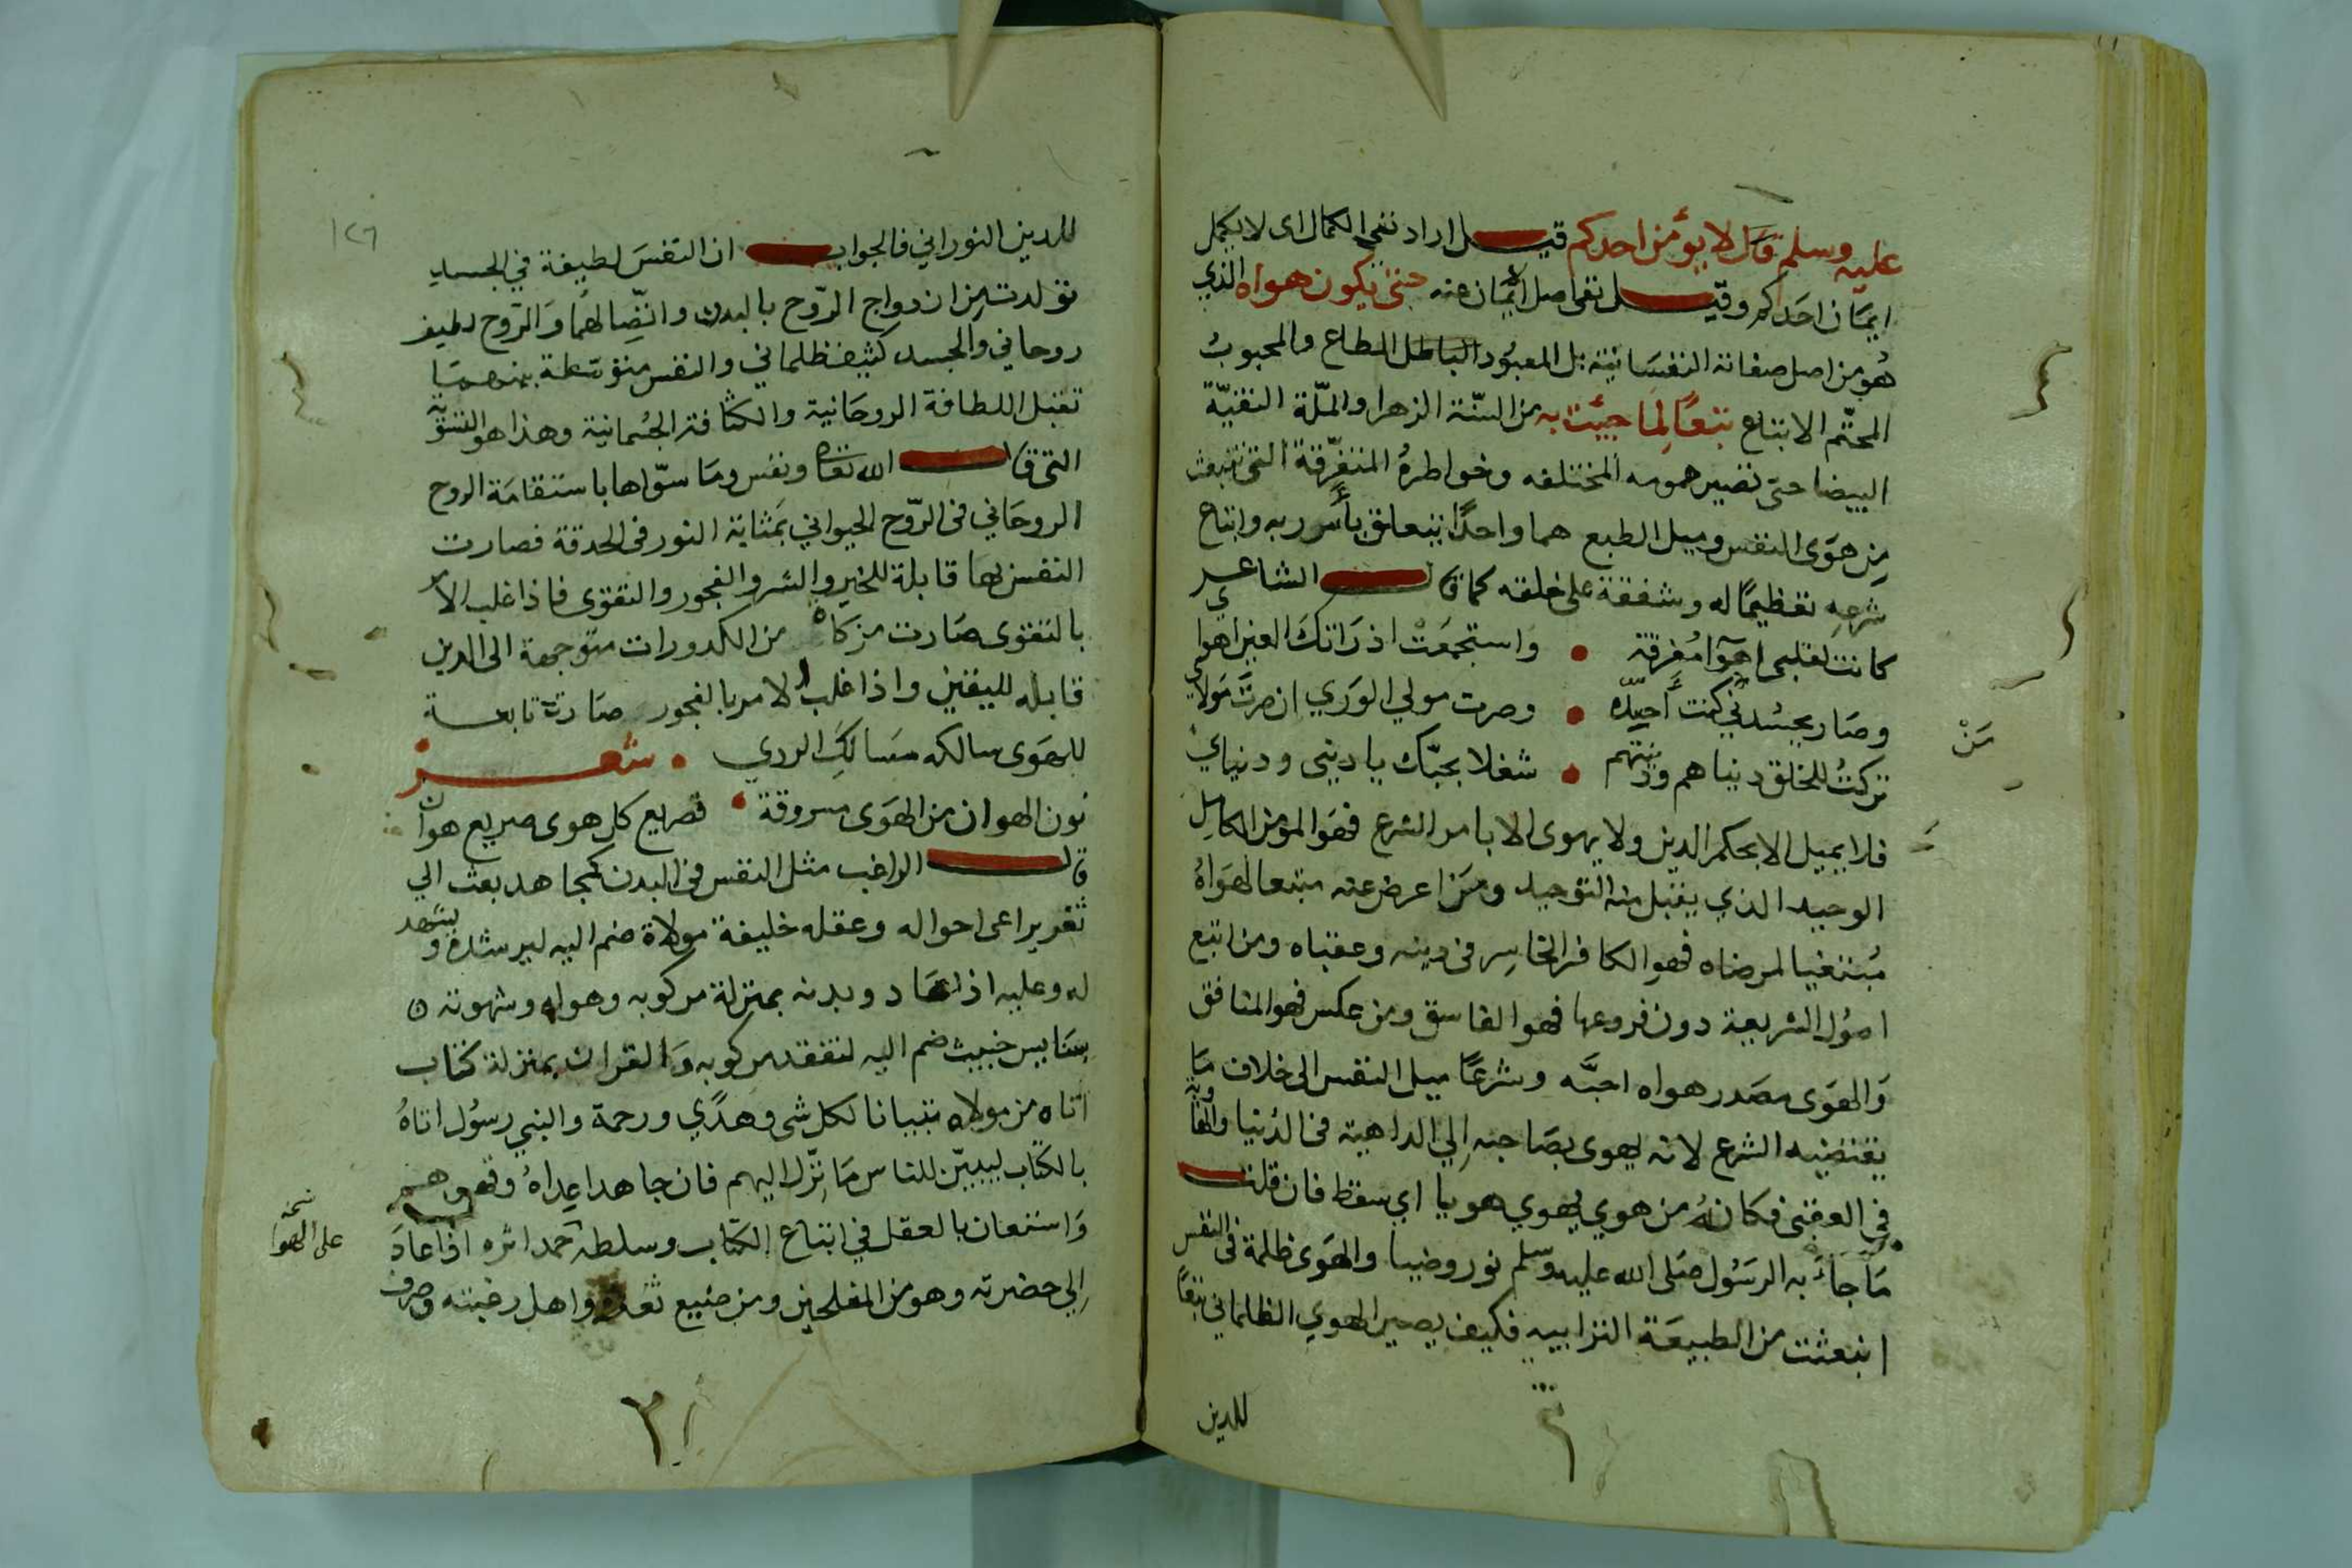 عليه وسلم قال لا يؤمن احدكم قيل اراد نفي الكمال اى لا يكمل
ايمان احدكم وقيل نفى اصل الايمان عنه حتى يكون هواه الذي
هو من اصل صفاته النفسانية بل المعبود الباطل المطاع والمحبوب
المحتّم الاتباع تبعًا لما جيئت به من السنّة الزهرا والملّة النقيّة
البيضا حتى تصير همومه المختلفه وخواطرهُ المتفرّقة التى تنبعث
مِن هوَى النفس وميل الطبع هما واحدًا يتعلق بأمر ربه واتباع
شرعِه تعظيمًا له وشفقة على خلقه كما قال الشاعر
كانت لقلبى اهوآ مُفرقة • واستجمعَتْ اذ رَاتكَ العين اهواي
وصَار يحسُدني من كنت أحسِدُه • وصرت مولي الورَي ان صرتَ مَولاي
تركتُ للخلق دنياهم ودينهم • شغلا بحبّك يا دينى ودنياي
فلا يميل الا بحكم الدين ولا يهوى الا بامر الشرع فهوَ المؤمن الكامِل
الوحيد الذي يقبل منه التوحيد ومَن اعرض عنه متبعا لهَواهُ
مُبتغيا لمرضاه فهو الكافر الخاسِر فى دينه وعقباه ومن اتبع
اصُول الشريعة دون فروعها فهو الفاسق ومن عكس فهو المنافق
وَالهَوى مصَدر هواه احبَّه وشرعًا ميل النفس الى خلاف مَا
يقتضيه الشرع لانه يهوى بصَاحبه اِلي الداهية فى الدُنيا والهاوية
في العقبى فكانهُ من هوي يهوي هويا اي سقط فان قلت
مَا جآءَ به الرسُول صَلى الله عليه وسلم نور وضيا والهَوى ظلمة فى النفس
انبعثت من الطبيعَة الترابيه فكيف يصير الهوي الظلماني تبعًا
للدين
١٢٦
للدين النوراني فالجواب ان النفسَ لطيفة في الجسدِ
تولدت مِن ازدواج الرّوح بالبدن واتّصالهُما وَالرّوح لطيف
روحاني والجسد كثيف ظلماني والنفس متوسّطة بينهما
تقبل اللطافة الروحَانية والكثافة الجُسمانية وهذا هو التسوية
التى قال الله تعالى ونفس ومَا سوّاها باستقامَة الروح
الروحَاني فى الرّوح الحيواني بمَثابة النور فى الحدقة فصارت
النفس بها قابلة للخير والشر والفجور والتقوى فاذا غلب الامر
بالتقوى صَارت مزكاه من الكدورات متوجهة الى الدين
قابله لليقين واذا غلب الامر بالفجور صَارت تابعة
للهَوى سالكه مسَالِكَ الردي • شعر
نون الهوان من الهَوى مسروقة • فصريع كل هوى صريع هوان
قال الراغب مثل النفس فى البدن كمجاهد بعث الي
ثغر يراعى احواله وعقله خليفة مولاة ضم اليه ليرشده ويشهد
له وعليه اذا عَاد وبدنه بمنزلة مركوبه وهواه وشهوته
سَايس خبيث ضم اليه لتفقد مركوبه وَالقران بمنزلة كتاب
اتاه من مولاه تبيانا لكل شى وهدًي ورحمة والنبي رسُول اتاهُ
بالكتاب ليبيّن للناس مَا نزّل اليهم فان جاهد اعداهُ وقهرهم
وَاستعان بالعقل في اتباع الكتاب وسلطه حمد اثره اذا عادَ
اِلي حضرته وهو من المفلحين ومن ضيع ثغره واهل رعيته وصرف
نسخه
على الهوا